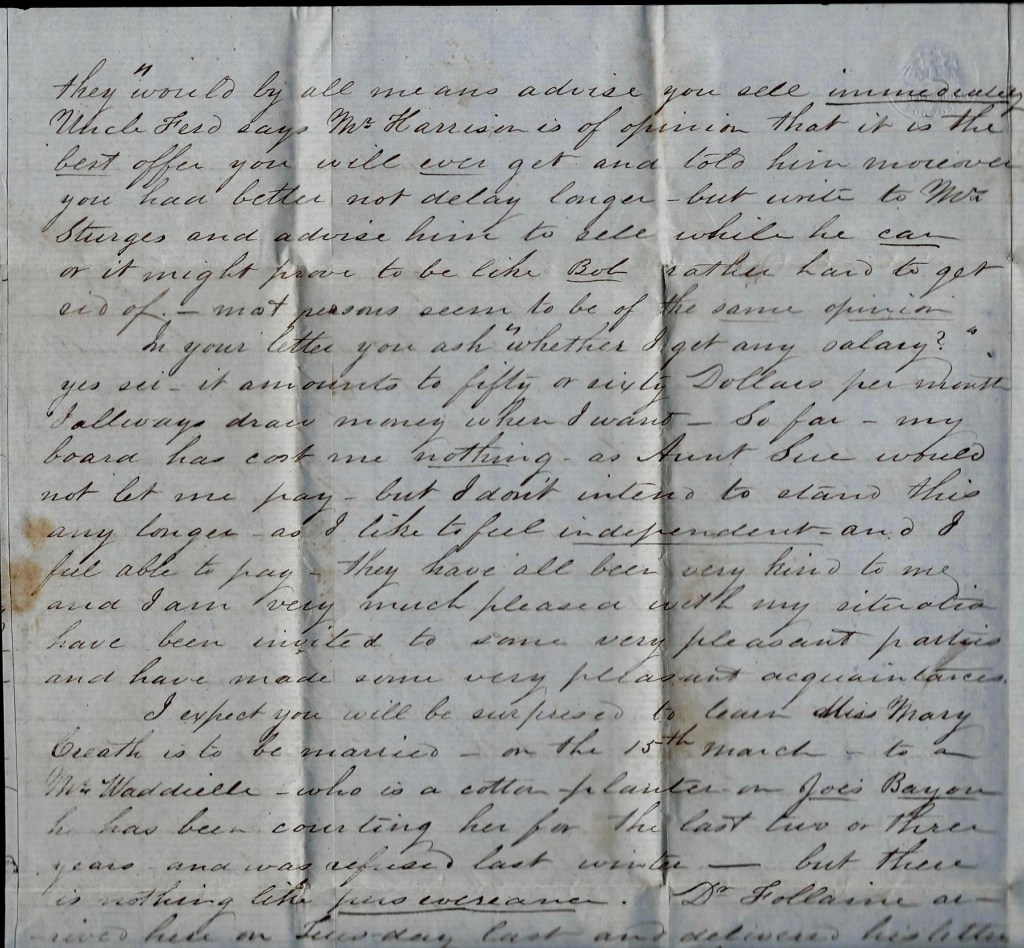 they "would by all means advise you sell immediately
Uncle Ferd says Mr Harrison is of opinion that it is the
best offer you will ever get and told him moreover
you had better not delay longer - but write to Mr
Sturges and advise him to sell while he can
or it might prove to be like Bob rather hard to get
rid of. - most persons seem to be of the same opinion
In your letter you ask "whether I get any salary?"
yes sir - it amounts to fifty or sixty Dollars per month
I allways draw money when I want - So far - my
board has cost me nothing - as Aunt Sue would
not let me pay - but I don't intend to stand this
any longer - as I like to feel independent - and I
feel able to pay - they have all been very kind to me
and I am very much pleased with my situation
have been invited to some very pleasant parties
and have made some very pleasant acquaintances.
I expect you will be surprised to learn Miss Mary
Creath is to be married - on the 15th March - to a
Mr Waddielle - who is a cotton planter on Joes Bayou
he has been courting her for the last two or three
years - and was refused last winter — but there
is nothing like persevereance. Dr Follaine ar-
rived here on Tuesday last and delivered his letter